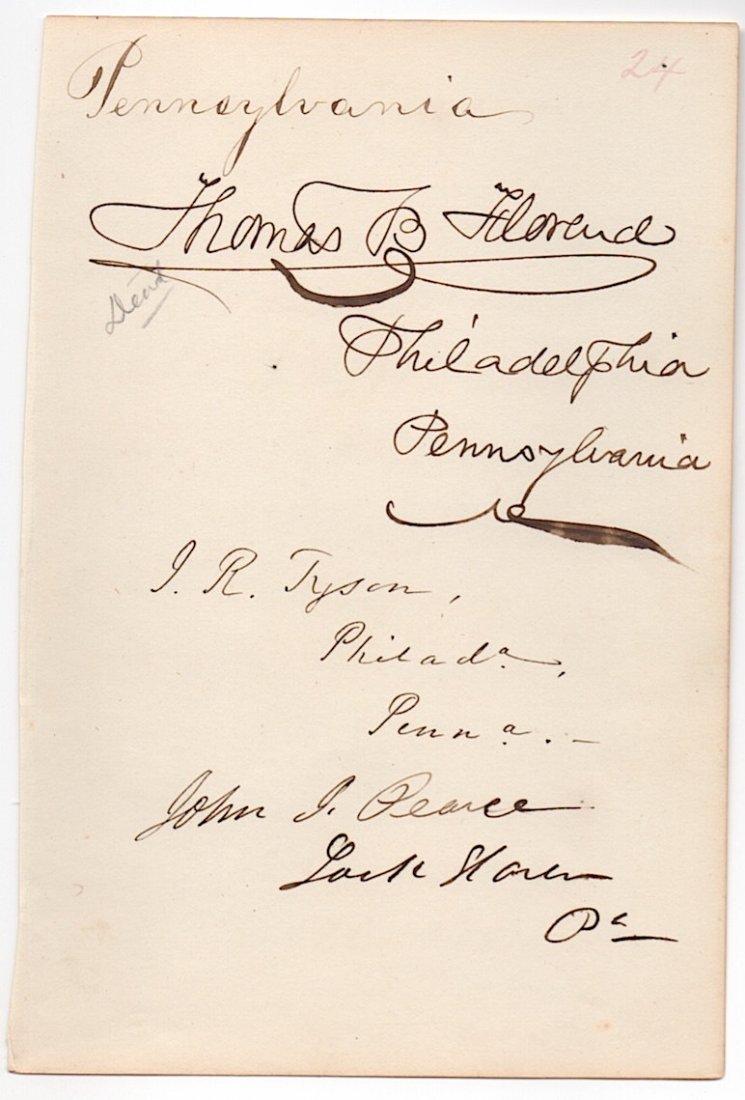 24
Pennsylvania
Thomas B Florence
Dead
Philadelphia
Pennsylvania
J. R. Tyson,
Philada,
Penna. –
John J. Pearce
Lock Haven
Pa